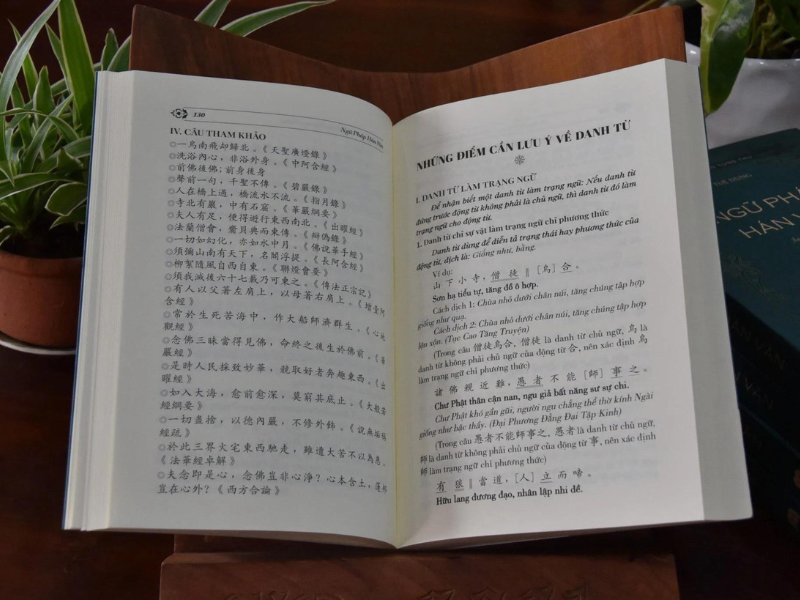 130
Ngữ Pháp Hán Văn
IV. CÂU THAM KHẢO
◎一馬南飛却歸北。《天聖廣燈錄》
◎洗浴內心，非浴外身。《中阿含經》
◎前佛後佛；前身後身
◎聲前一句，千聖不傳。《碧巖錄》
◎人在橋上過，橋流水不流。《指月錄》
◎寺北有巖，中有石窟。《華嚴綱要》
◎夫人有足，便得遊行東西南北。《出曜經》
◎法蘭僧會，齎貝典而東傳。《辯偽錄》
◎一切如幻化，亦如水中月。《佛說華手經》
◎須彌山南有天下，名閻浮提。《長阿含經》
◎柳絮隨風自西自東。《聯燈會要》
◎須我滅後六十七載乃可東之。《傳法正宗記》
◎有人以父著左肩上，以母著右肩上。《增壹阿
含經》
◎常於生死苦海中，作大船師濟群生。《心地
觀經》
◎念佛三昧當得見佛，命終之後生於佛前。《華
嚴經》
◎是時人民採致妙華，競取好者奔趣東西。《出
曜經》
◎如入大海，愈前愈深，莫窮其底止。《大般若
經綱要》
◎一切盡捨，以他內嚴，不修外飾。《說無垢稱
經疏》
◎於此三界火宅東西馳走，雖遭大苦不以為患。
《法華經卓解》
◎夫念即是心，念佛豈非心淨？心本含土，蓮邦
豈在心外？《西方合論》
NHỮNG ĐIỂM CẦN LƯU Ý VỀ DANH TỪ
I. DANH TỪ LÀM TRẠNG NGỮ
Để nhận biết một danh từ làm trạng ngữ: Nếu danh từ
đứng trước động từ không phải là chủ ngữ, thì danh từ đó làm
trạng ngữ cho động từ.
1. Danh từ chỉ sự vật làm trạng ngữ chỉ phương thức
Danh từ dùng để diễn tả trạng thái hay phương thức của
động từ, dịch là: Giống như, bằng.
Ví dụ:
山下小寺，僧徒 ‖ [烏] 合。
Sơn hạ tiểu tự, tăng đồ ô hợp.
Cách dịch 1: Chùa nhỏ dưới chân núi, tăng chúng tập hợp
giống như quạ.
Cách dịch 2: Chùa nhỏ dưới chân núi, tăng chúng tập hợp
lộn xộn. (Tục Cao Tăng Truyện)
(Trong câu 僧徒烏合, 僧徒 là danh từ chủ ngữ, 烏 là
danh từ không phải chủ ngữ của động từ 合, nên xác định 烏
làm trạng ngữ chỉ phương thức)
諸佛親近難，愚者不能 [師] 事之。
Chư Phật thân cận nan, ngu giả bất năng sư sự chi.
Chư Phật khó gần gũi, người ngu chẳng thể thờ kính Ngài
giống như bậc thầy. (Đại Phương Đẳng Đại Tập Kinh)
(Trong câu 愚者不能師事之, 愚者 là danh từ chủ ngữ, 師
là danh từ không phải chủ ngữ của động từ 事, nên xác định
師 làm trạng ngữ chỉ phương thức)
有狼 ‖ 當道，[人] 立而啼。
Hữu lang đương đạo, nhân lập nhi đề.
NGỮ PHÁP
HÁN V